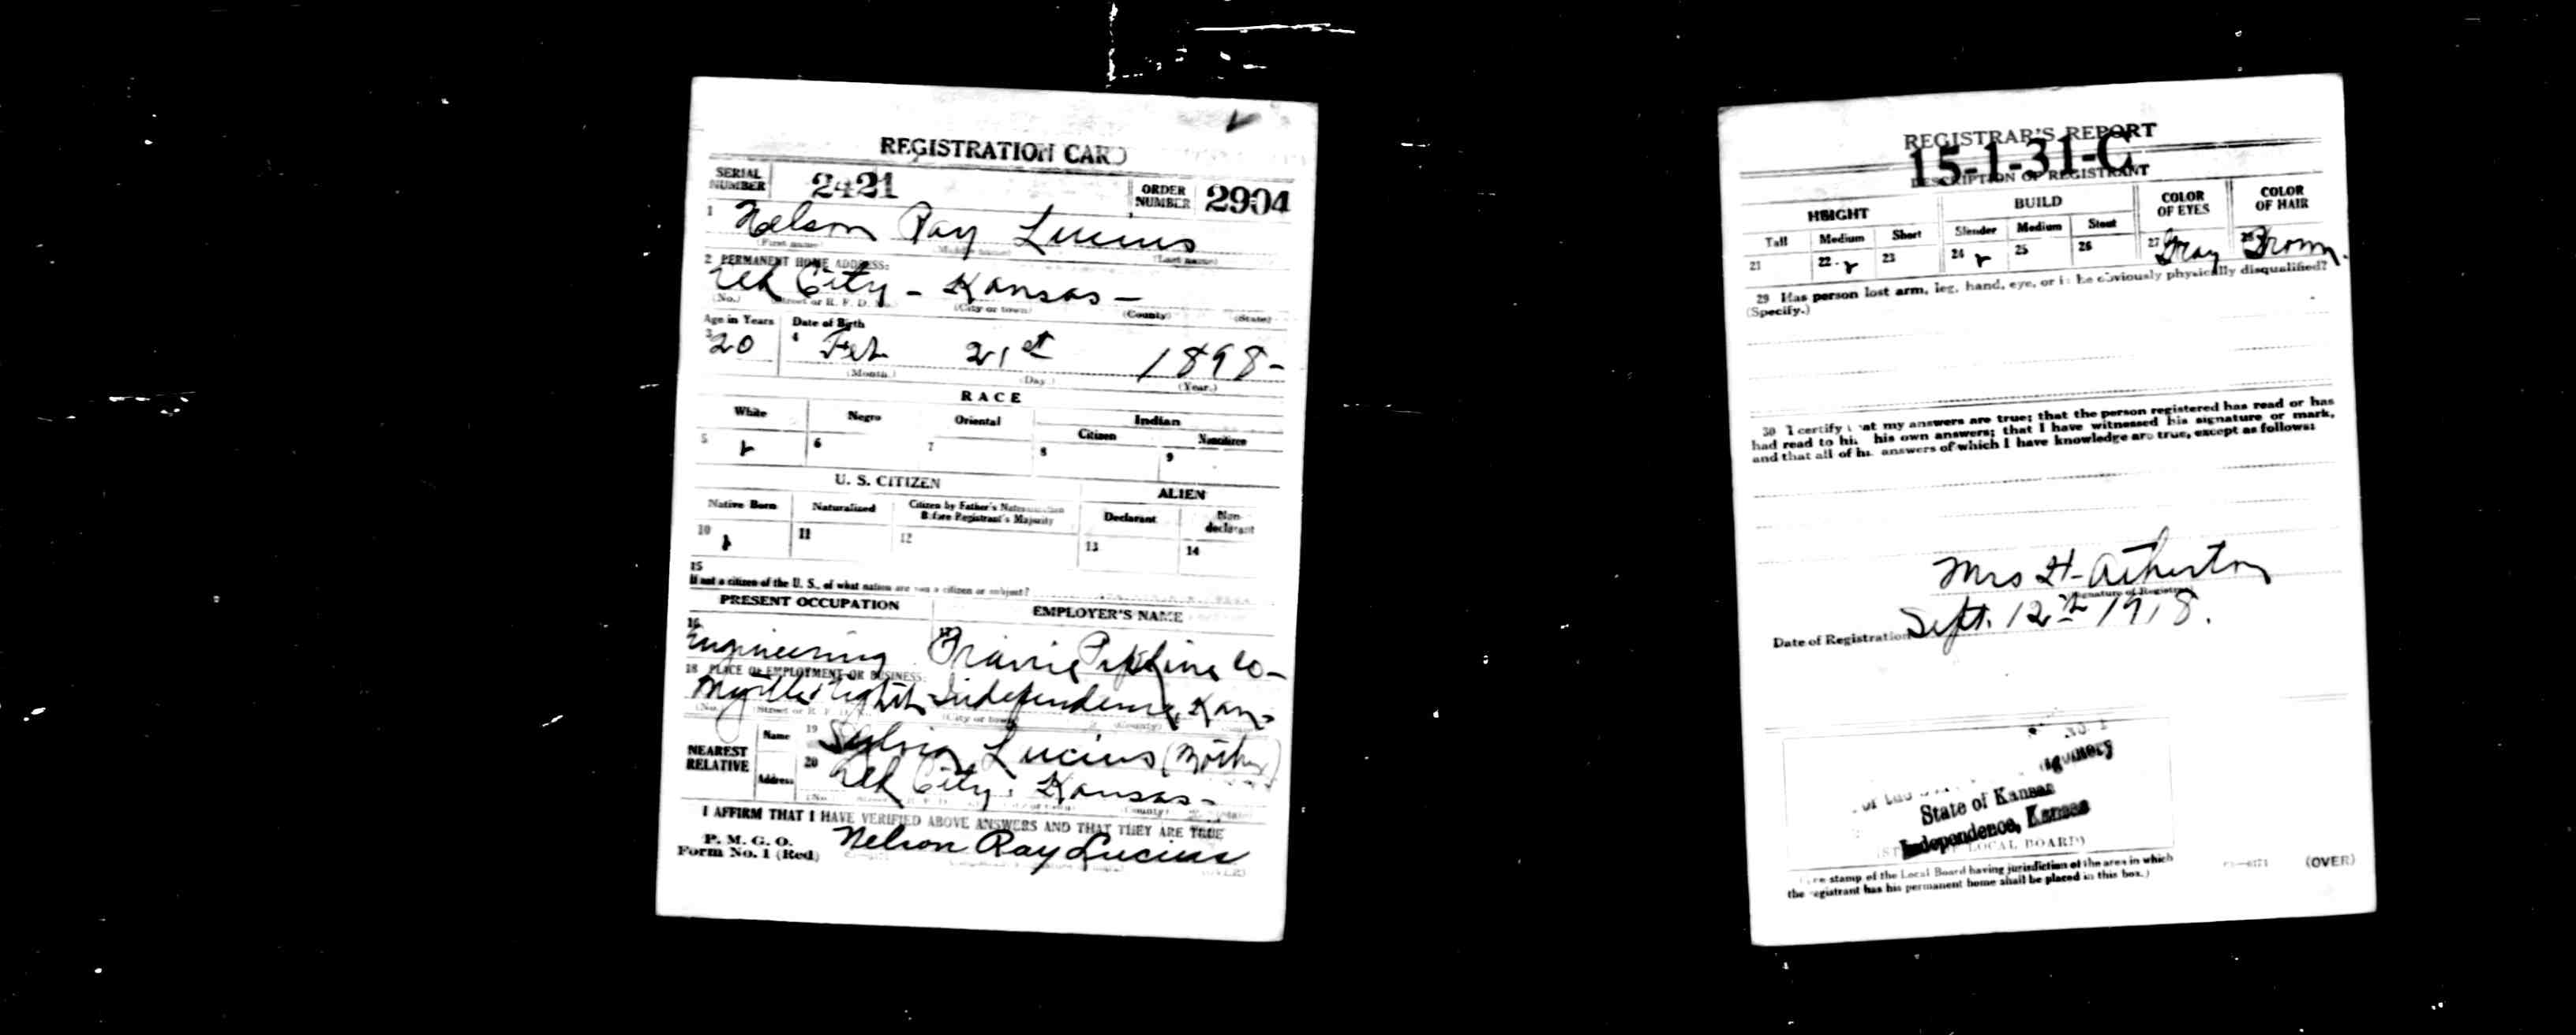 REGISTRATION CARD
SERIAL NUMBER 2421 ORDER NUMBER 2904
1 Nelson Ray Lucius
(First name) (Middle name) (Last name)
2 PERMANENT HOME ADDRESS:
Elk City - Kansas -
(No.) (Street or R. F. D. No.) (City or town) (County) (State)
Age in Years Date of Birth
3 20 4 Feb 21st 1898-
(Month.) (Day.) (Year.)
RACE
White Negro Oriental Indian
Citizen Noncitizen
5 6 7 8 9
U. S. CITIZEN ALIEN
Native Born Naturalized Citizen by Father's Naturalization Before Registrant's Majority Declarant Non-declarant
10 11 12 13 14
15
If not a citizen of the U. S., of what nation are you a citizen or subject?
PRESENT OCCUPATION EMPLOYER'S NAME
16 Engineering 17 Prairie Pipeline Co-
18 PLACE OF EMPLOYMENT OR BUSINESS:
Myrtle & Eighth Independence, Kan-
(No.) (Street or R. F. D. (City or town) (County)
NEAREST RELATIVE
Name 19 Sylvia Lucius (Mother)
Address 20 Elk City, Kansas-
(No. (County)
I AFFIRM THAT I HAVE VERIFIED ABOVE ANSWERS AND THAT THEY ARE TRUE
P. M. G. O.
Form No. 1 (Red) Nelson Ray Lucius
(OVER)
REGISTRAR'S REPORT
15-1-31-C
DESCRIPTION OF REGISTRANT
HEIGHT BUILD COLOR OF EYES COLOR OF HAIR
Tall Medium Short Slender Medium Stout
21 22 23 24 25 26 27 Gray 28 Brown
29 Has person lost arm, leg, hand, eye, or is he obviously physically disqualified?
(Specify.)
30 I certify that my answers are true; that the person registered has read or has
had read to him his own answers; that I have witnessed his signature or mark,
and that all of his answers of which I have knowledge are true, except as follows:
Mrs H- Atherton
(Signature of Registrar)
Date of Registration Sept. 12th 1918.
No. 1
State of Kansas
Independence, Kansas
LOCAL BOARD)
stamp of the Local Board having jurisdiction of the area in which
the registrant has his permanent home shall be placed in this box.)
(OVER)